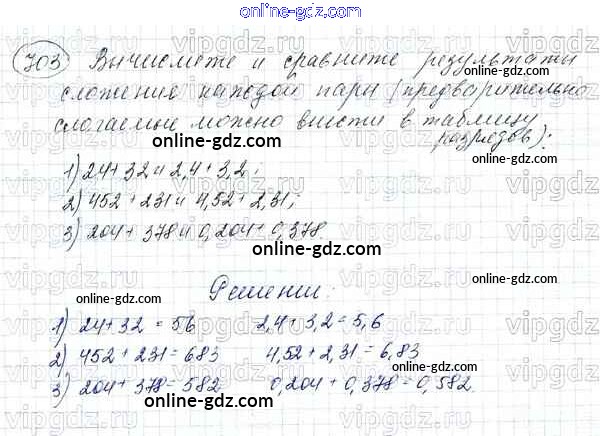 online-gdz.com
703 Вычислете и сравните результаты
сложение каждой пары (предварительно
слогаемые можно внести в таблицу
разрядов):
1) 24+32 и 2,4+3,2;
2) 452+231 и 4,52+2,31;
3) 204+378 и 0,204+0,378.
online-gdz.com
online-gdz.com
online-gdz.com
Решении:
1) 24+32=56 2,4+3,2=5,6
online-gdz.com
2) 452+231=683 4,52+2,31=6,83
3) 204+378=582 0,204+0,378=0,582.
online-gdz.com
online-gdz.com